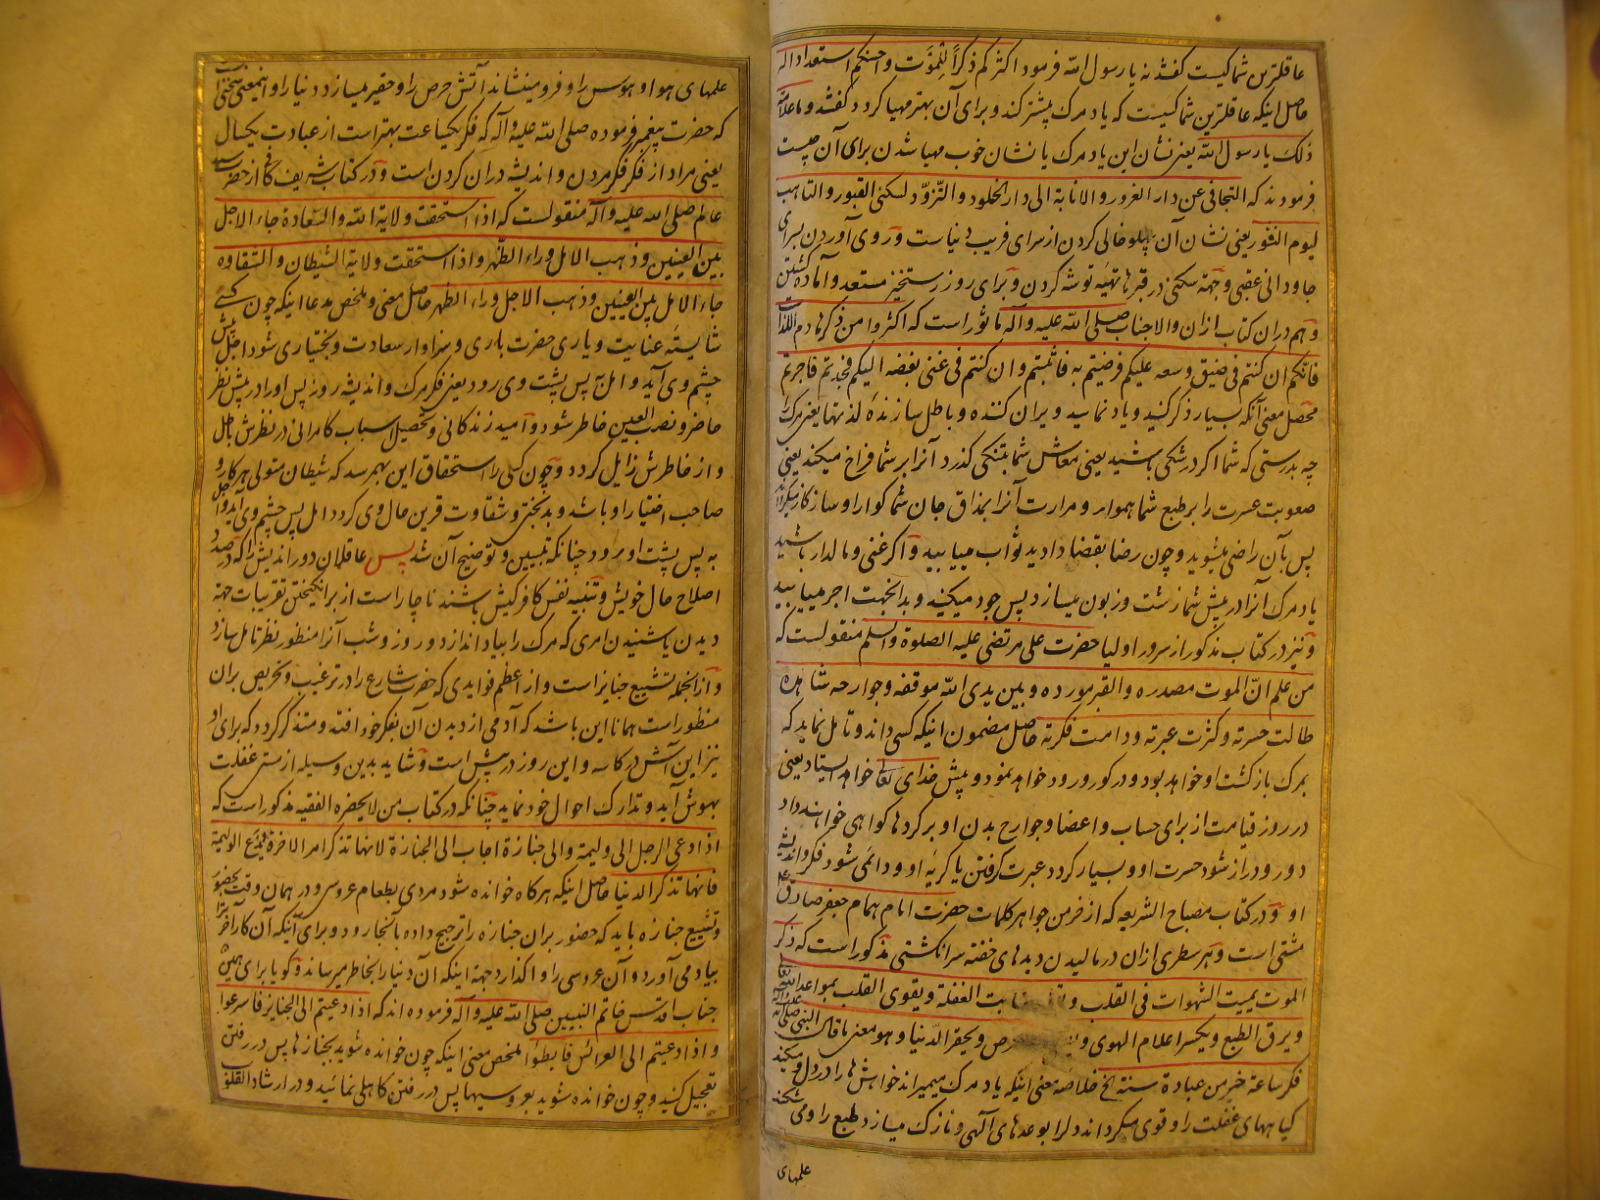 عاقلترین شما کیست گفتند نه یا رسول الله فرمود اکثرکم ذکراً للموت و احسنکم استعداداً له
حاصل اینکه عاقلترین شما کیست که یاد مرک بیشتر کند و برای آن بهتر مهیا کردد گفتند و ما علامة
ذلک یا رسول الله یعنی نشان این یاد مرک یا نشان خوب مهیا شدن برای آن چیست
فرمودند که التجافی عن دار الغرور و الانابة الی دار الخلود و التزود لسکنی القبور و التاهب
لیوم النشور یعنی نشان آن پهلو خالی کردن از سرای فریب دنیاست و روی آوردن بسرای
جاودانی عقبی و جهة سکنی در قبرها تهیه توشه کردن و برای روز رستخیز مستعد و آماده کشتن
و هم در آن کتاب از آن والاجناب صلی الله علیه و آله ماثور است که اکثروا من ذکر هادم اللذات
فانکم ان کنتم فی ضیق وسعه علیکم فرضیتم به فاثبتم و ان کنتم فی غنی بغضه الیکم فجدتم فاجرتم
محصل معنی آنکه بسیار ذکر کنید و یاد نمایید ویران کننده و باطل سازندهٔ لذتها یعنی مرک
چه بدرستی که شما اکر در تنکی باشید یعنی معاش شما بتنکی کذرد آنرا بر شما فراخ میکند یعنی
صعوبت عسرت را بر طبع شما هموار و مرارت آنرا بمذاق جان شما کوارا و سازکار میکرداند
پس بآن راضی میشوید و چون رضا بقضا دادید ثواب مییابید و اکر غنی و مالدار باشید
یاد مرک آنرا در پیش شما زشت و زبون میسازد پس جود میکنید و بدانجهت اجر مییابید
و نیز در کتاب مذکور از سرور اولیا حضرت علی مرتضی علیه الصلوة والسلم منقولست که
من علم انّ الموت مصدره و القبر مورده و بین یدی الله موقفه و جوارحه شاهده
طالت حسرته و کثرت عبرته و دامت فکرته حاصل مضمون اینکه کسی داند و تامل نماید که
بمرک بازکشت او خواهد بود و در کور ورود خواهد نمود و پیش خدای تعالی خواهد ایستاد یعنی
در روز قیامت از برای حساب و اعضا و جوارح بدن او بر کردها کواهی خواهند داد
دور و دراز شود حسرت او و بسیار کردد عبرت کرفتن یا کریهٔ او و دائمی شود فکر و اندیشه
او و در کتاب مصباح الشریعه که از خرمن جواهر کلمات حضرت امام همام جعفر صادق ع
مشتی است و هر سطری از آن در مالیدن دیدهای خفته سرانکشتی مذکور است که ذکر
الموت یمیت الشهوات فی القلب و منابت الغفلة و یقوی القلب بمواعد الله تعالی
و یرق الطبع و یکسر اعلام الهوی و و یحقر الدنیا و هو معنی ما قال النبی صلی الله علیه و آله
فکر ساعة خیر من عبادة سنة الخ خلاصه معنی اینکه یاد مرک میمیراند خواهشها را در دل و میکند
کیاههای غفلت را و قوی میکرداند دل را بوعدهای آلهی و نازک میسازد طبع را و می شکند
علمهای
علمهای هوا و هوس را و فرو مینشاند آتش حرص را و حقیر میسازد دنیا را و اینمعنی سخنی است
که حضرت پیغمبر فرموده صلی الله علیه و آله که فکر یکساعت بهتر است از عبادت یکسال
یعنی مراد از فکر فکر مردن و اندیشه در آن کردن است و در کتاب شریف کافی از حضرت سید
عالم صلی الله علیه و آله منقولست که اذا استحقت ولایة الله والسعادة جاء الاجل
بین العینین و ذهب الامل وراء الظهر و اذا استحقت ولایة الشیطان و الشقاوه
جاء الامل بین العینین و ذهب الاجل وراء الظهر حاصل معنی و ملخص مدعا اینکه چون کسی
شایستهٔ عنایت و یاری حضرت باری و سزاوار سعادت و بختیاری شود اجل پیش
چشم وی آید و امل به پس پشت وی رود یعنی فکر مرک و اندیشه روز پس او را در پیش نظر
حاضر و نصب العین خاطر شود و امید زندکانی و تحصیل اسباب کامرانی در نظرش باطل
و از خاطرش زایل کردد و چون کسی را استحقاق این بهم رسد که شیطان متولی هر کار و
صاحب اختیار او باشد و بدبختی و شقاوت قرین حال وی کردد امل پس چشم وی آید و اجل
به پس پشت او برود چنانکه تبیین و توضیح آن شد پس عاقلان دوراندیش را که در صدد
اصلاح حال خویش و تنبیه نفس کافر کیش باشند ناچار است از برانکیختن تقریبات جهة
دیدن یا شنیدن امری که مرک را بیاد اندازد و روز و شب آنرا منظور نظر تامل سازد
و از آنجمله تشییع جنایز است و از اعظم فوایدی که حضرت شارع را در ترغیب و تحریص بر آن
منظور است همانا این باشد که آدمی از دیدن آن بفکر خود افتد و متذکر کردد که برای او
نیز این آش در کاسه و این روز در پیش است و شاید بدین وسیله از مستی غفلت
بهوش آید و تدارک احوال خود نماید چنانکه در کتاب من لا یحضره الفقیه مذکور است که
اذا دعی الرجل الی ولیمة و الی جنازة اجاب الی الجنازة لانها تذکر امر الاخرة و یدع الولیمة
فانها تذکر الدنیا حاصل اینکه هرکاه خوانده شود مردی بطعام عروسی و در همان وقت بحضور
و تشییع جنازه باید که حضور بر آن جنازه را ترجیح داده بآنجا رود و برای آنکه آن کار آخرت را
بیاد می آورد و آن عروسی را واکذارد جهة اینکه آن دنیا را بخاطر میرساند و کویا برای همین
جناب اقدس خاتم النبیین صلی الله علیه و آله فرموده اند که اذا دعیتم الی الجنایز فاسرعوا
و اذا دعیتم الی العرائس فابطؤا ملخص معنی اینکه چون خوانده شوید بجنازها پس در رفتن
تعجیل کنید و چون خوانده شوید بعروسیها پس در رفتن کاهلی نمائید و در ارشاد القلوب